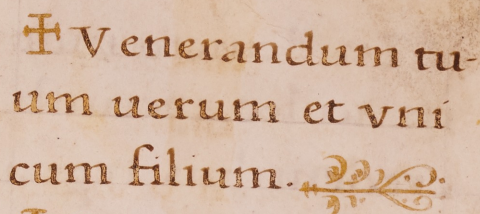 ✝ Venerandum tu-
um uerum et vni
cum filium.